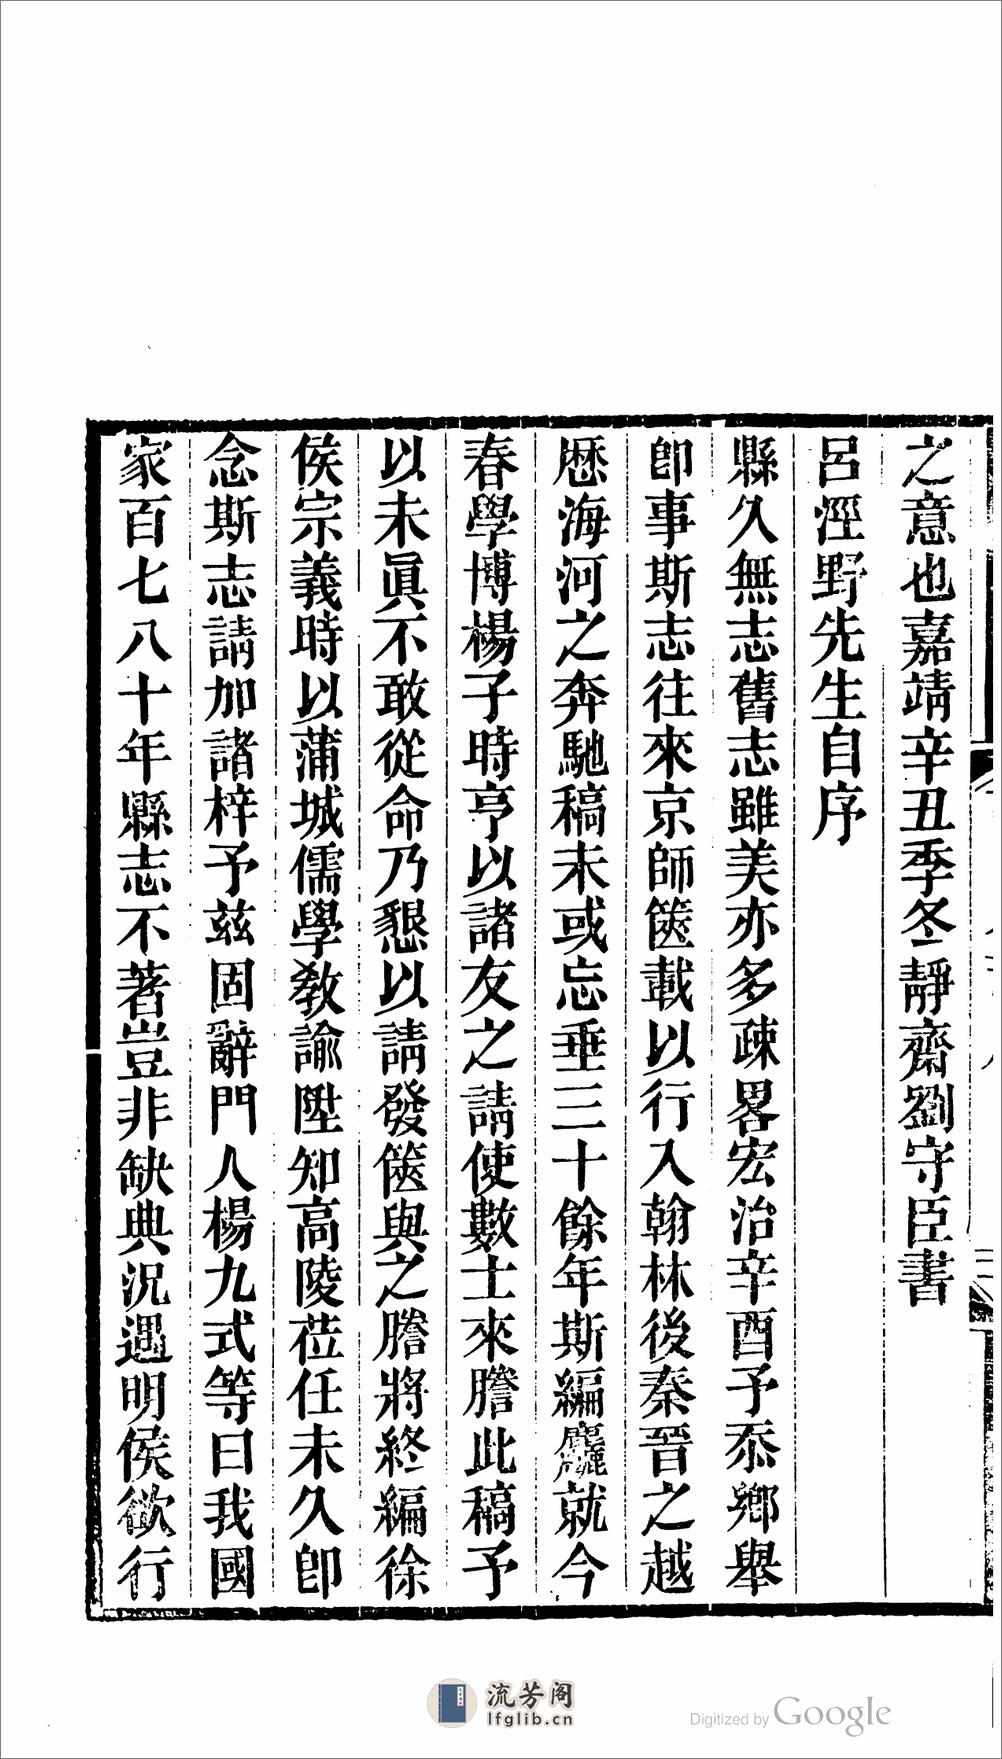 之意也嘉靖辛丑季冬靜齋劉守臣書
呂涇野先生自序
縣久無志舊志雖美亦多疎畧宏治辛酉予忝鄉舉
卽事斯志往來京師篋載以行入翰林後秦晉之越
歷海河之奔馳稿未或忘垂三十餘年斯編麤就今
春學博楊子時亨以諸友之請使數士來謄此稿予
以未眞不敢從命乃懇以請發篋與之謄將終編徐
侯宗義時以蒲城儒學教諭陞知高陵莅任未久卽
念斯志請加諸梓予茲固辭門人楊九式等曰我國
家百七八十年縣志不著豈非缺典況遇明侯欲行
流芳阁
lfglib.cn
Digitized by Google